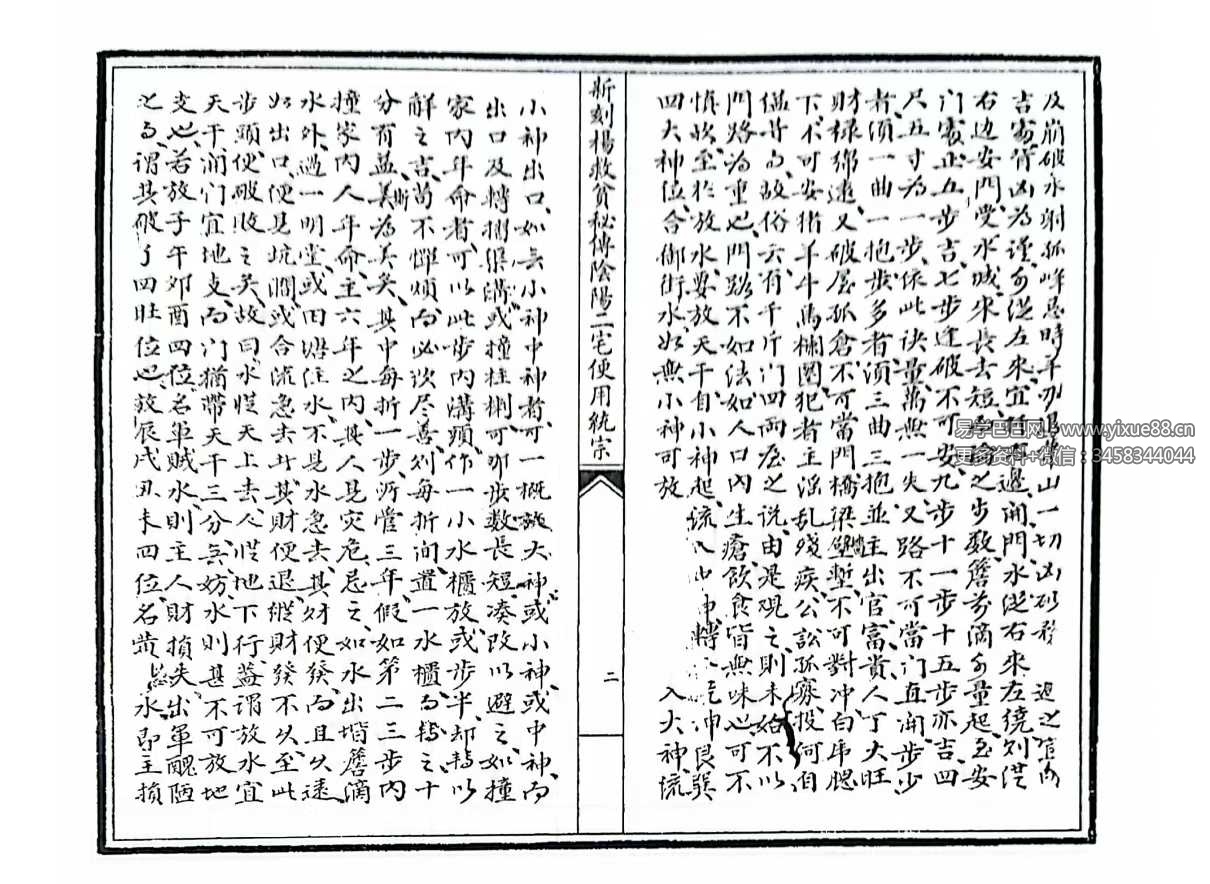 及崩破水射孤峰忌時年月山一切凶砂
吉富背凶為謹介從左來宜開門水從右來左繞刘從
右边安門受水城來長去短之步数簷前滴介量起至安
门處止五步吉七步逢破不可安九步十一步十五步亦吉四
尺五寸為一步依此诀量萬無一失又路不可當门直開步少
者須一曲一抱步多者須三曲三抱並主出官富貴人丁大旺
財禄綿遠又破屋孤倉不可當門橋梁壁塹不可對冲白虎腮
下不可安猪羊牛馬栅圈犯者主淫乱殘疾公訟孤寡投何自
缢昔曰故俗云有千斤门四兩屋之说由是观之則未始不以
門路為重也門路不如法如人口内生瘡飲食皆無味也可不
慎欤至於放水要放天干自小神起流入中神轉冲艮巽
四大神位合御街水如無小神可放入大神流
新刻楊救貧秘傳陰陽二宅便用統宗
二
小神出口如無小神中神者可一概放大神或小神或中神而
出口及轉摺渠溝或撞柱捌可卯步数長短湊改以避之如撞
家内年命者可以此步内溝頭作一小水櫃放或步半却轉以
解之吉苗不惮煩而必诶尽善刘每折间置一水櫃而转之十
分有益美為美矣其中每折一步沂管三年假如第二三步内
撞家内人年命主六年之内其人見灾危忌之如水出堦簷滴
水外過一明堂或田塘住水不見水急去其财便發而且久遠
如出口便見坑澗或合流急去廾其財便退縱財發不久至此
步頭便破败之矣故曰水從天上去人從地下行蓋謂放水宜
天干而门宜地支而门猶帶天干三分無妨水則甚不可放地
支也若放子午卯酉四位名軍賊水則主人財損失出軍醜陋
之而謂其破了四旺位也放辰戌丑未四位名黄水即主損
易学巴巴网 www.yixue88.cn
更多资料+微信：3458344044